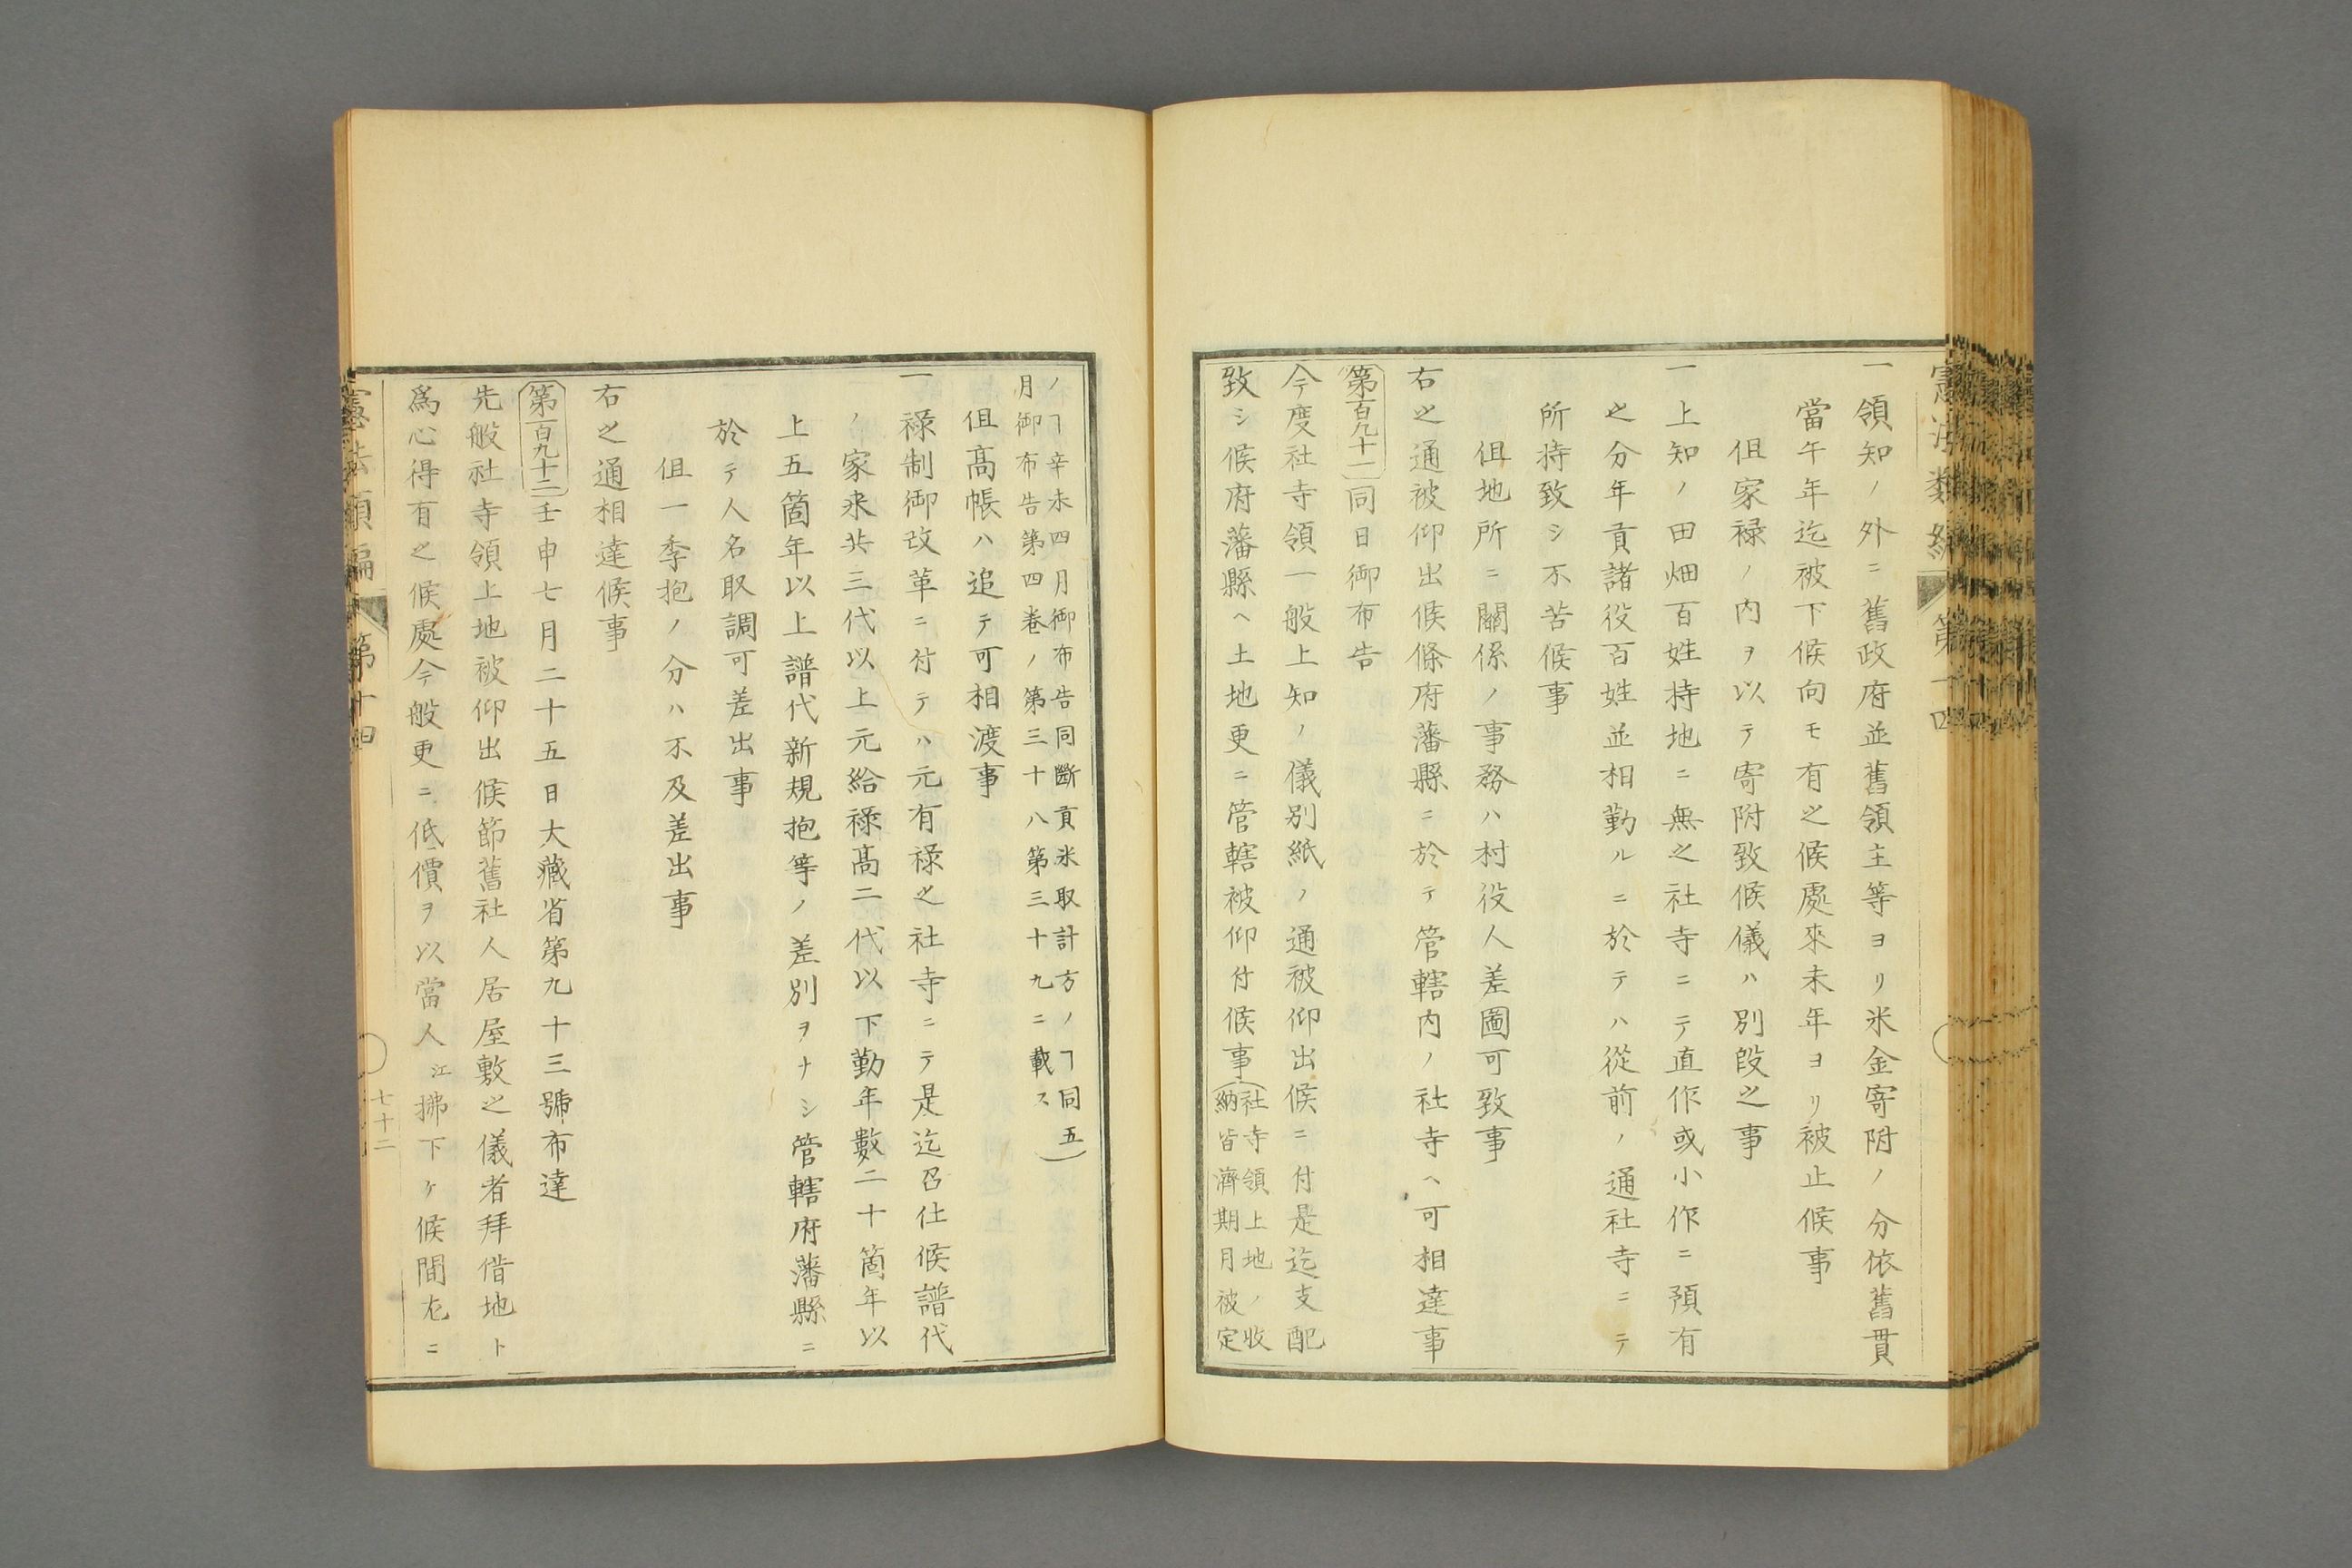 憲法類編 第十四
一領知ノ外ニ舊政府並舊領主等ヨリ米金寄附ノ分依舊貫
當午年迄被下候向モ有之候處來未年ヨリ被止候事
但家禄ノ内ヲ以テ寄附致候儀ハ別段之事
一上知ノ田畑百姓持地ニ無之社寺ニテ直作或小作ニ預有
之分年貢諸役百姓並相勤ルニ於テハ從前ノ通社寺ニテ
所持致シ不苦候事
但地所ニ關係ノ事務ハ村役人差圖可致事
右之通被仰出候條府藩縣ニ於テ管轄内ノ社寺ヘ可相達事
第百九十一同日御布告
今度社寺領一般上知ノ儀別紙ノ通被仰出候ニ付是迄支配
致シ候府藩縣ヘ土地更ニ管轄被仰付候事(社寺領上地ノ收
納皆濟期月被定
ノヿ辛未四月御布告同斷貢米取計方ノヿ同五)
月御布告第四卷ノ第三十八第三十九ニ載ス
但髙帳ハ追テ可相渡事
一禄制御改革ニ付テハ元有禄之社寺ニテ是迄召仕候譜代
ノ家来共三代以上元給禄髙二代以下勤年數二十箇年以
上五箇年以上譜代新規抱等ノ差別ヲナシ管轄府藩縣ニ
於テ人名取調可差出事
但一季抱ノ分ハ不及差出事
右之通相達候事
第百九十二壬申七月二十五日大藏省第九十三號布達
先般社寺領上地被仰出候節舊社人居屋敷之儀者拜借地ト
爲心得有之候處今般更ニ低價ヲ以當人江拂下ケ候間左ニ
憲法類編 第十四
七十二